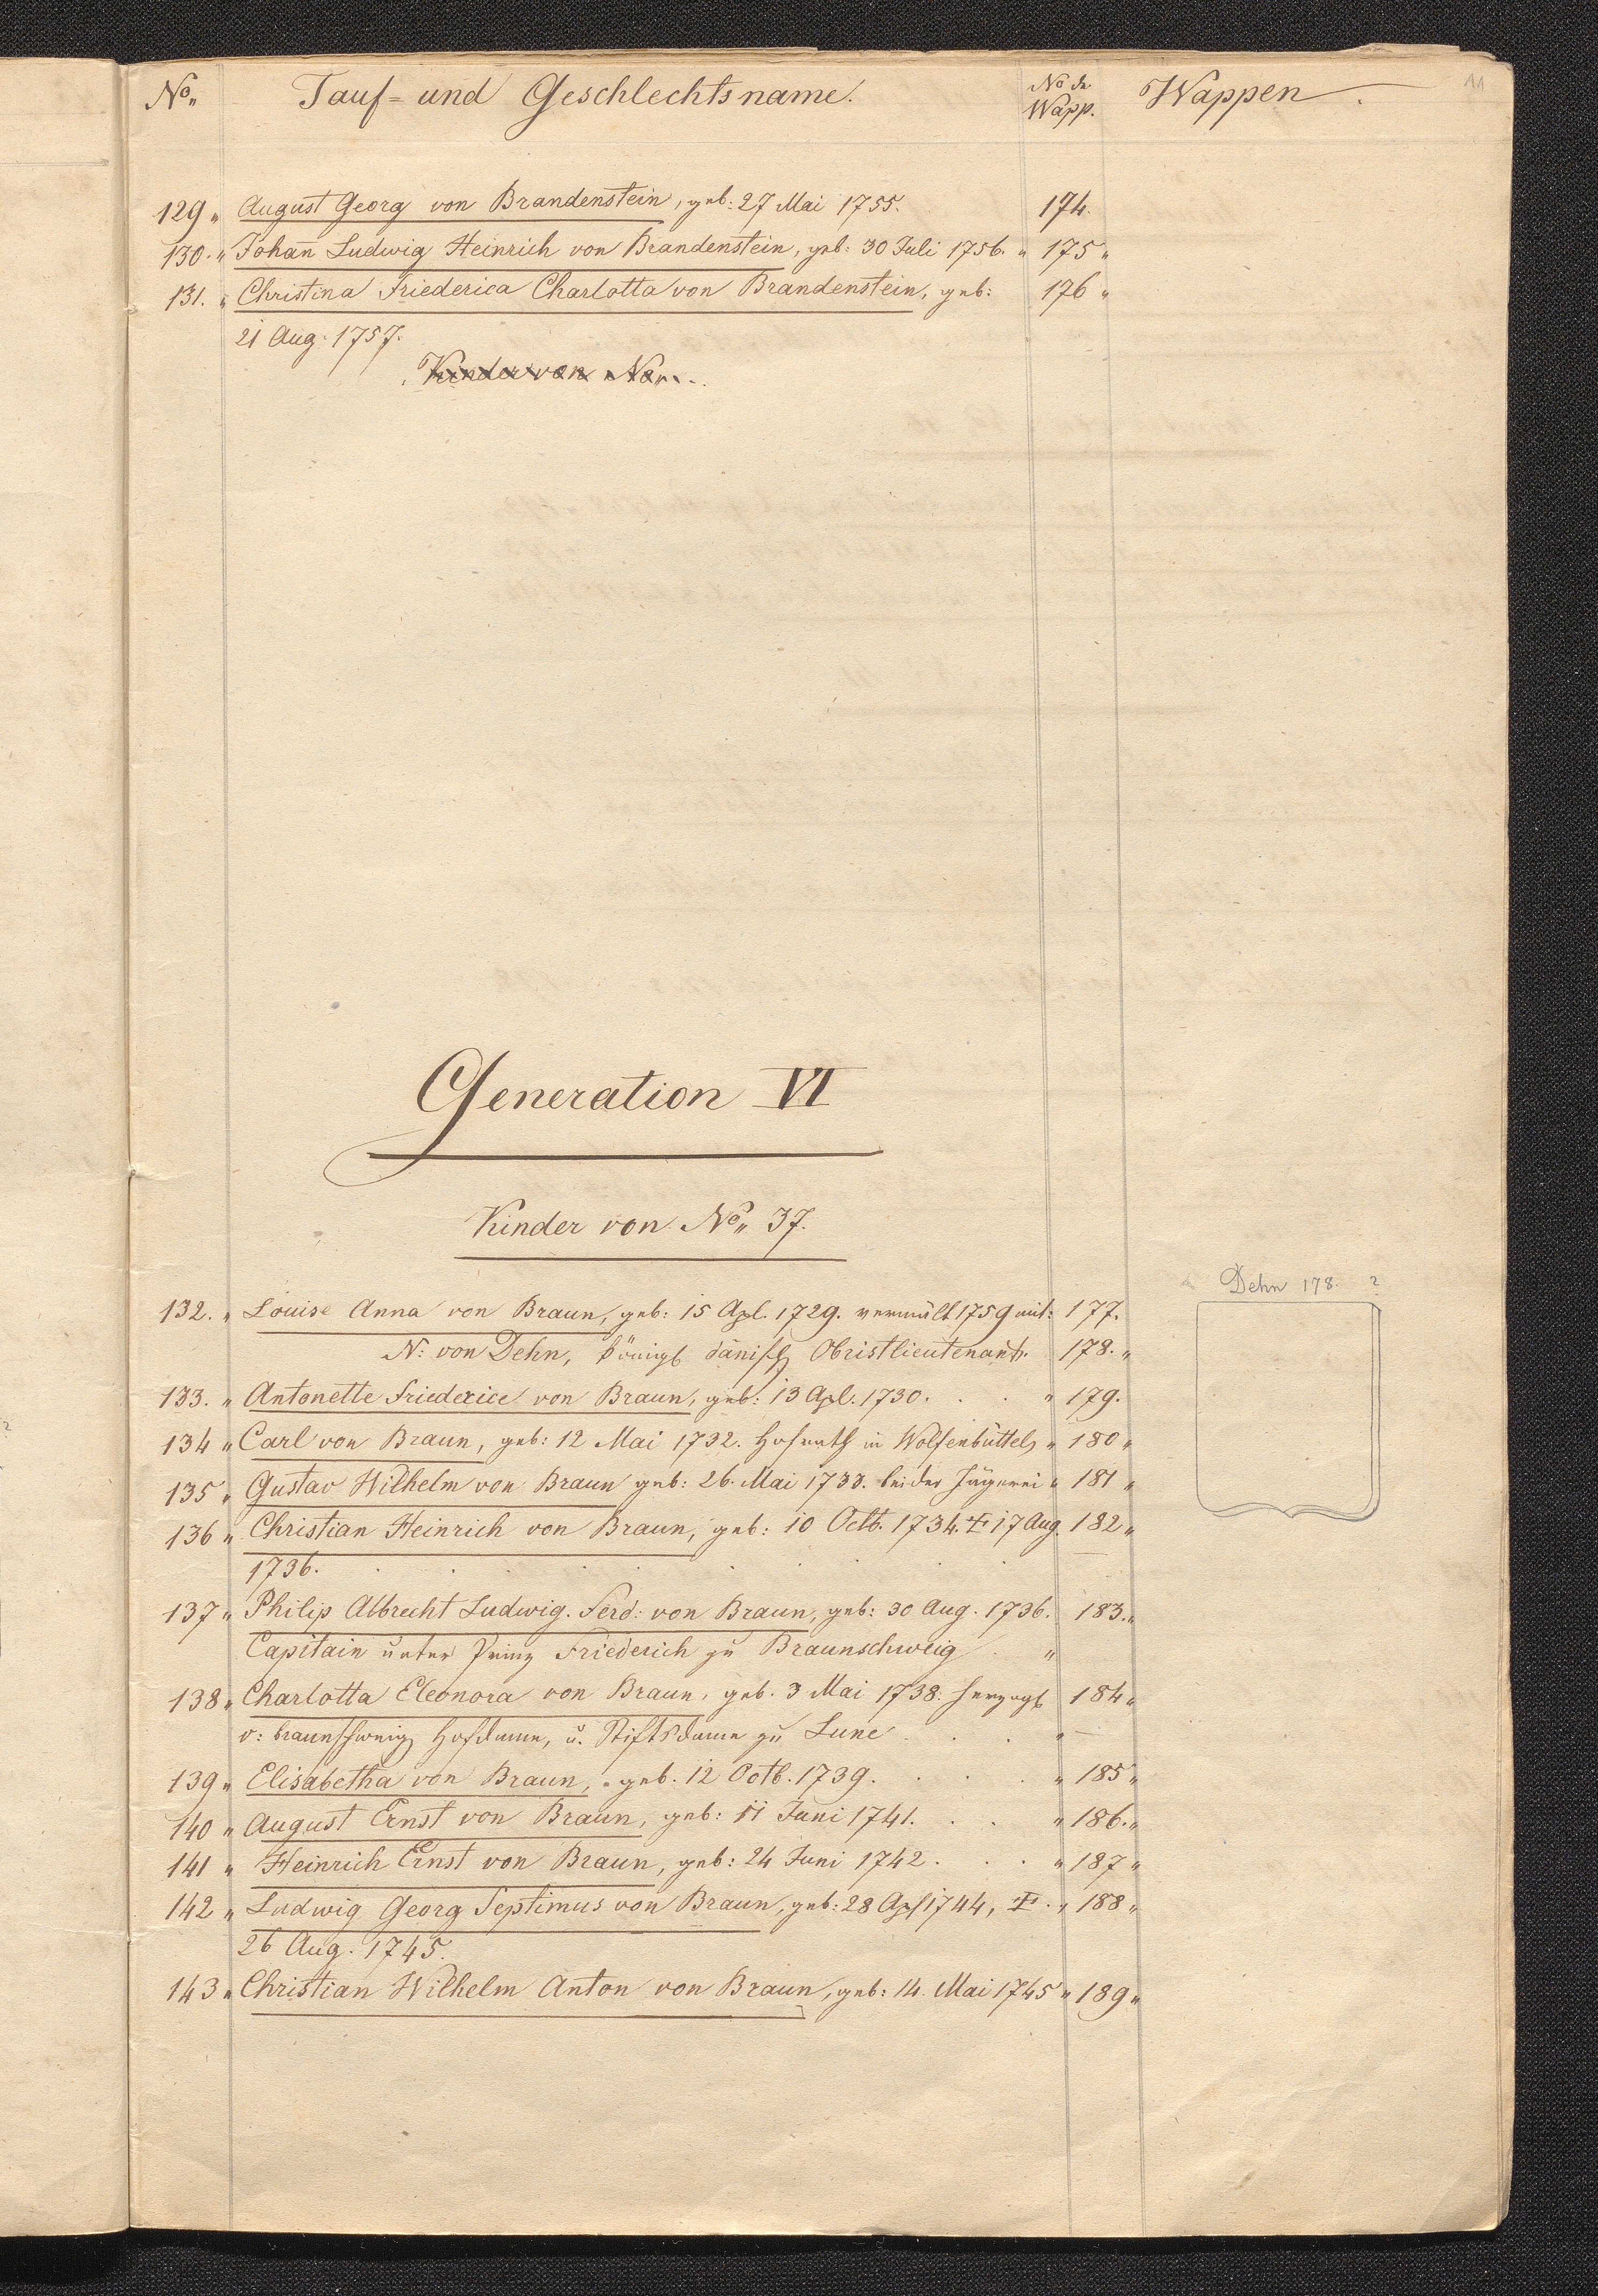 No. Tauf- und Geschlechtsname. No d. Wapp. Wappen. 11
129 „ August Georg von Brandenstein, geb: 27 Mai 1755. 174.
130. „ Johan̄ Ludwig Heinrich von Brandenstein, geb: 30 Juli 1756. „ 175 „
131. „ Christina Friederica Charlotta von Brandenstein, geb: 176 „
21 Aug. 1757.
Kinder von No „ . .
Generation VI
Kinder von No „ 37.
Dehn 178. ?
132. „ Louise Anna von Braun, geb: 15 Apl. 1729. vermält 1759 mit: 177.
N: von Dehn, königl dänisch Obristlieutenant. 178. „
133. „ Antonette Friederice von Braun, geb: 13 Apl. 1730. . . „ 179.
134 „ Carl von Braun, geb: 12 Mai 1732. Hofrath in Wolfenbüttel, „ 180 „
135 „ Gustav Wilhelm von Braun geb: 26. Mai 1733. bei der Jägerei „ 181 „
136 „ Christian Heinrich von Braun, geb: 10 Octb. 1734. ‡ 17 Aug. 182 „
1736. . . . . . . . —
137 „ Philip Albrecht Ludwig. Ferd: von Braun, geb: 30 Aug. 1736. 183. „
Capitain unter Prinz Friederich zu Braunschweig . „
138 „ Charlotta Eleonora von Braun, geb. 3 Mai 1738: herzogl 184 „
v: braunschweig Hofdame, u. Stiftsdame zu Lune . . . „ —
139 „ Elisabetha von Braun, geb. 12 Octb. 1739. . . . „ 185 „
140 „ August Ernst von Braun, geb: 11 Juni 1741. . . „ 186. „
141 „ Heinrich Ernst von Braun, geb: 24 Juni 1742. . . . „ 187 „
142 „ Ludwig Georg Septimus von Braun, geb: 28 Apl 1744, ‡ . „ 188 „
26 Aug. 1745.
143 „ Christian Wilhelm Anton von Braun, geb: 14. Mai 1745 „ 189 „